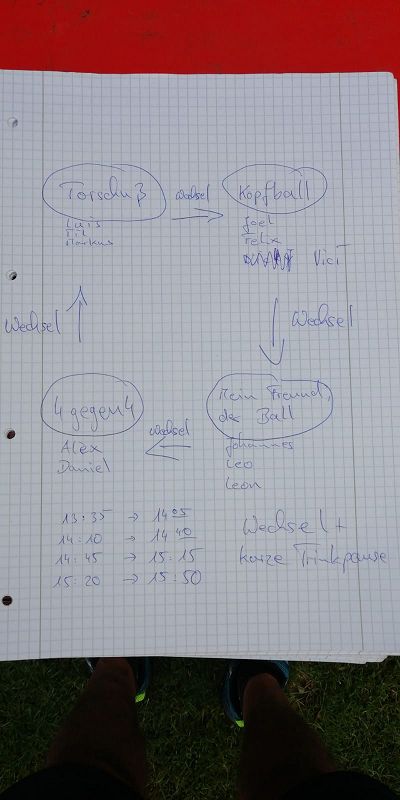 Torschuß
Wechsel
Kopfball
Luis
Til
Markus
Joel
Felix
Vici
Wechsel
Wechsel
4 gegen 4
Wechsel
Mein Freund,
der Ball
Alex
Daniel
Johannes
Leo
Leon
13:35 → 14 05
14:10 → 14 40
14:45 → 15:15
15:20 → 15:50
Wechsel +
kurze Trinkpause